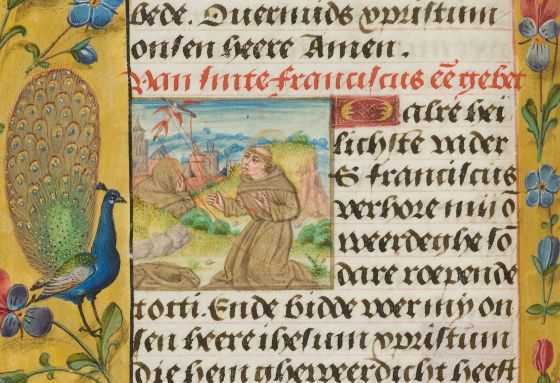 bede. Ouermids xpristum
onsen heere Amen.
Van sinte franciscus eē gebet
alre hei
lichste vader
S franciscus
verhore mij ō
weerdeghe sō
dare roepende
totti. Ende bidde voer my on
sen heere ihesum xpristum
die hem ghewerdicht heeft